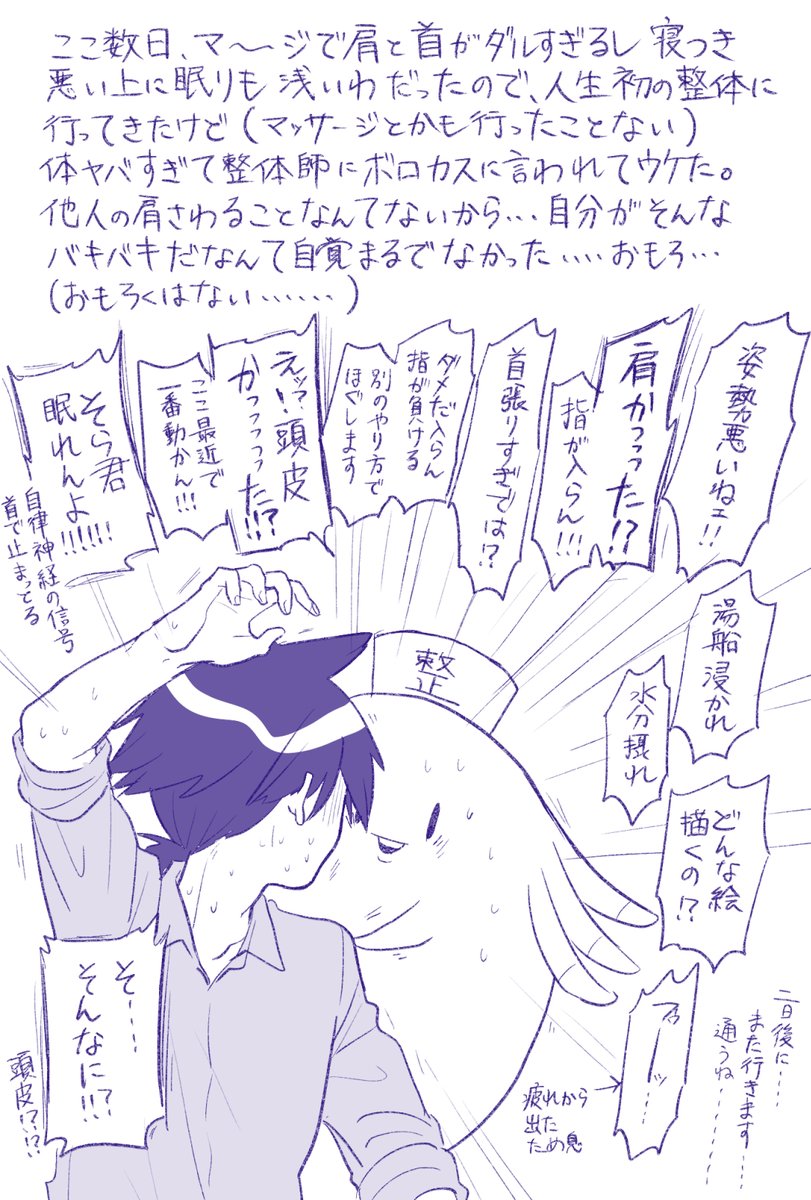 ここ数日、マ〜〜ジで肩と首がダルすぎるし 寝つき
悪い上に眠りも 浅いわ だったので、人生初の整体に
行ってきたけど（マッサージとかも行ったことない）
体ヤバすぎて整体師にボロカスに言われてウケた。
他人の肩さわることなんてないから…自分がそんな
バキバキだなんて自覚まるでなかった‥‥おもろ…
（おもろくはない……‥）
姿勢悪いねェ!!
肩かっっった!?
指が入らん!!!
首張りすぎでは!?
ダメだ入らん
指が負ける
別のやり方で
ほぐします
えッ?!頭皮
かっっっっった!!?
ここ最近で
一番動かん!!!
そら君
眠れんよ!!!!!!
自律神経の信号
首で止まってる
整
湯船浸かれ
水分摂れ
どんな絵
描くの!?
疲れから
出た
ため息
そ……
そんなに!!?
頭皮!?!?
二日後に…
また行きます……
通うね………